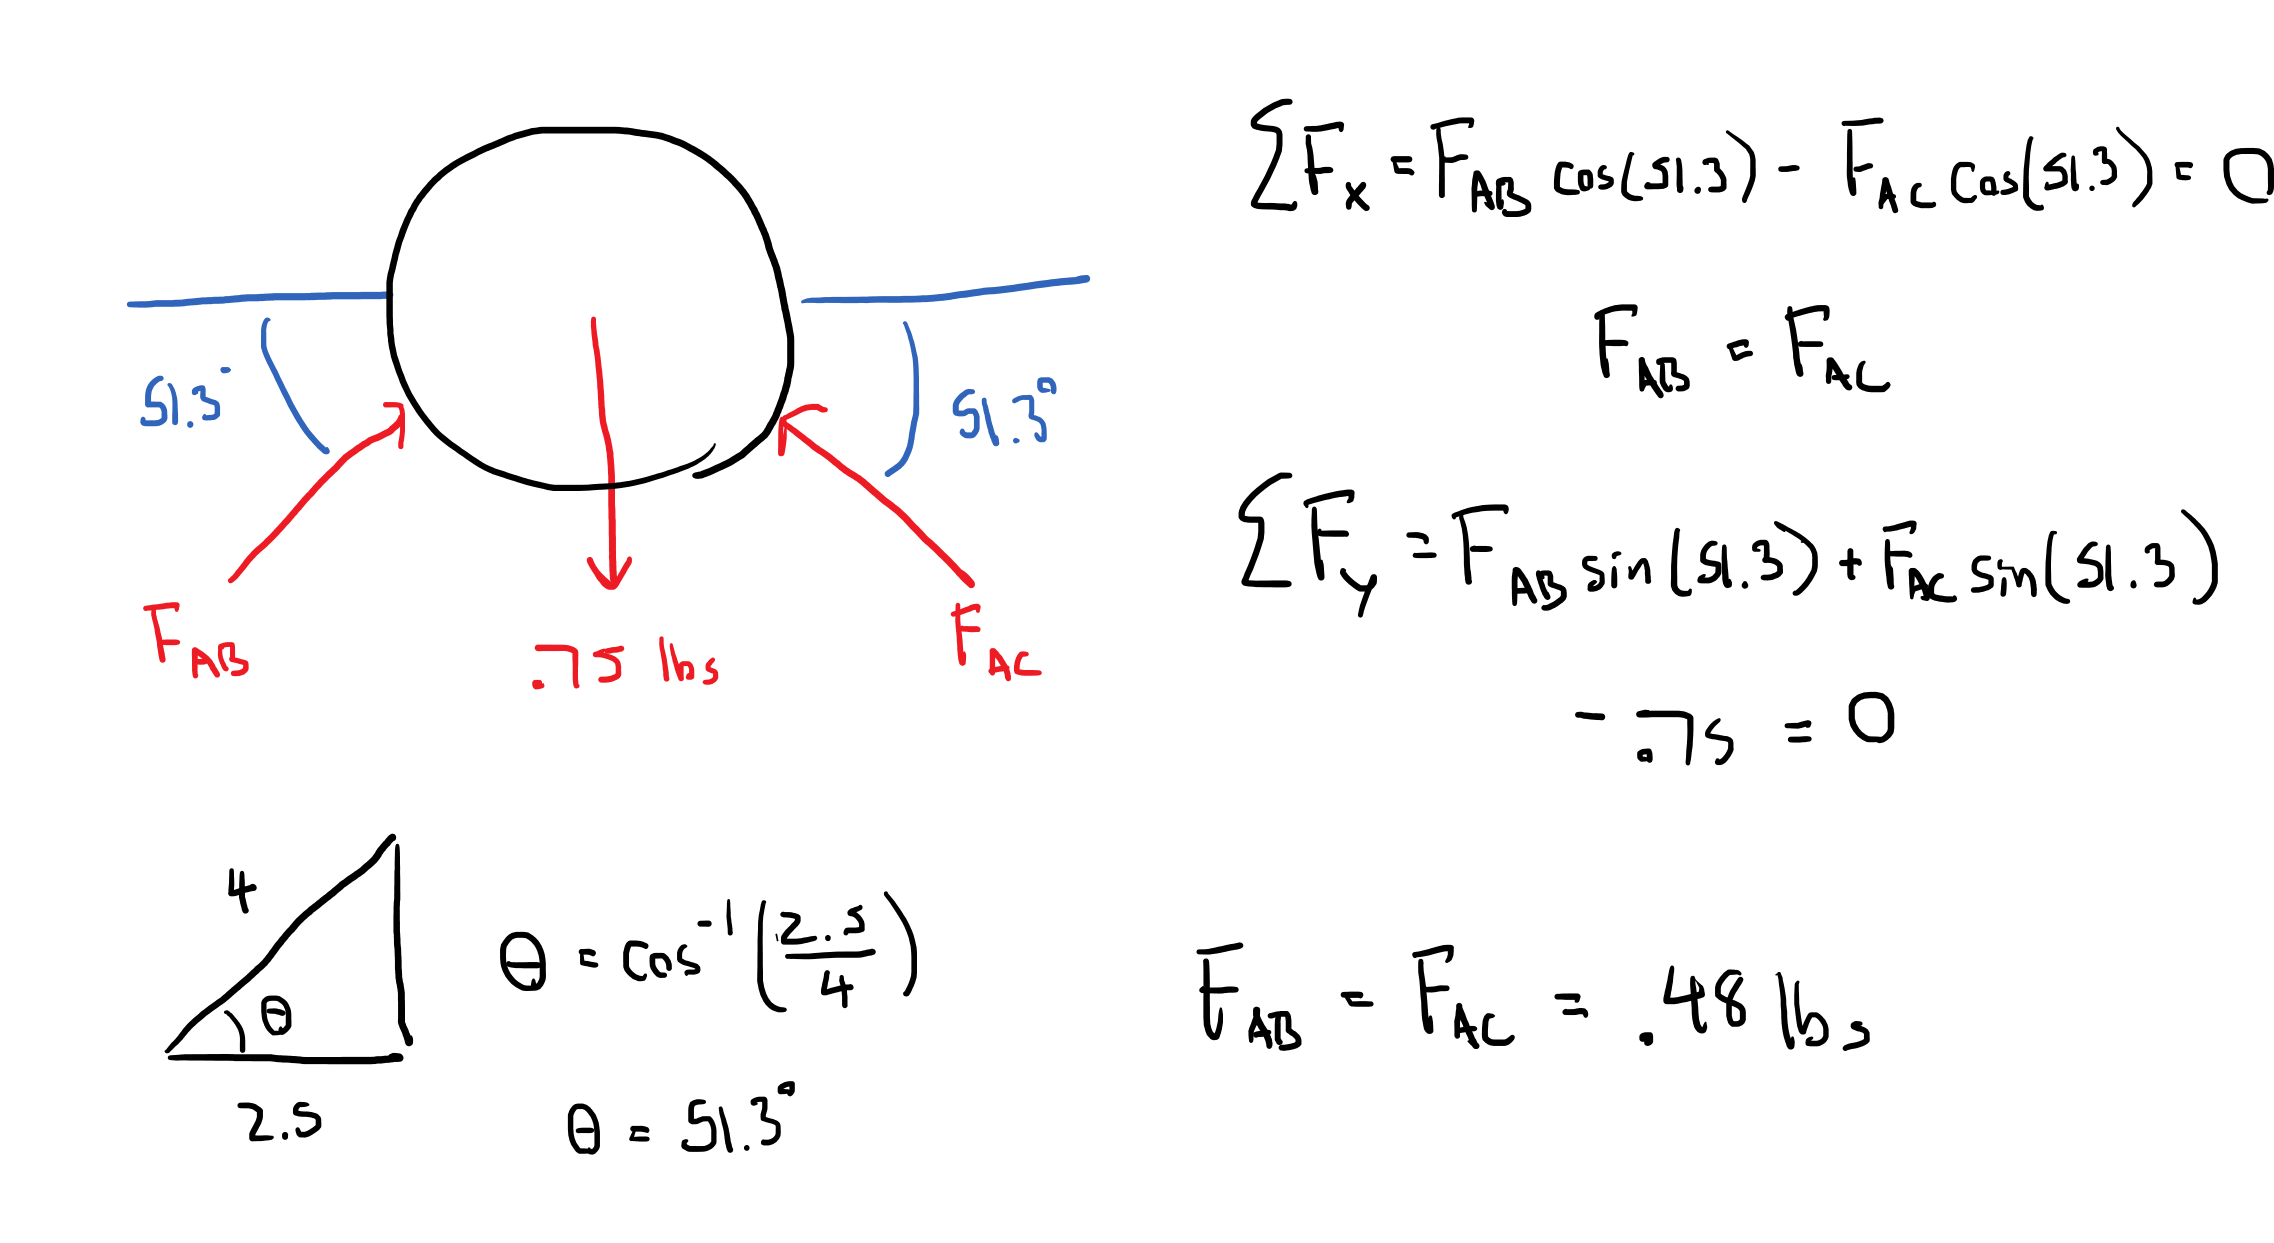 51.3°
51.3°
F_AB
.75 lbs
F_AC
4
θ
2.5
θ = cos⁻¹(2.5/4)
θ = 51.3°
∑F_x = F_AB cos(51.3) - F_AC cos(51.3) = 0
F_AB = F_AC
∑F_y = F_AB sin(51.3) + F_AC sin(51.3)
- .75 = 0
F_AB = F_AC = .48 lbs